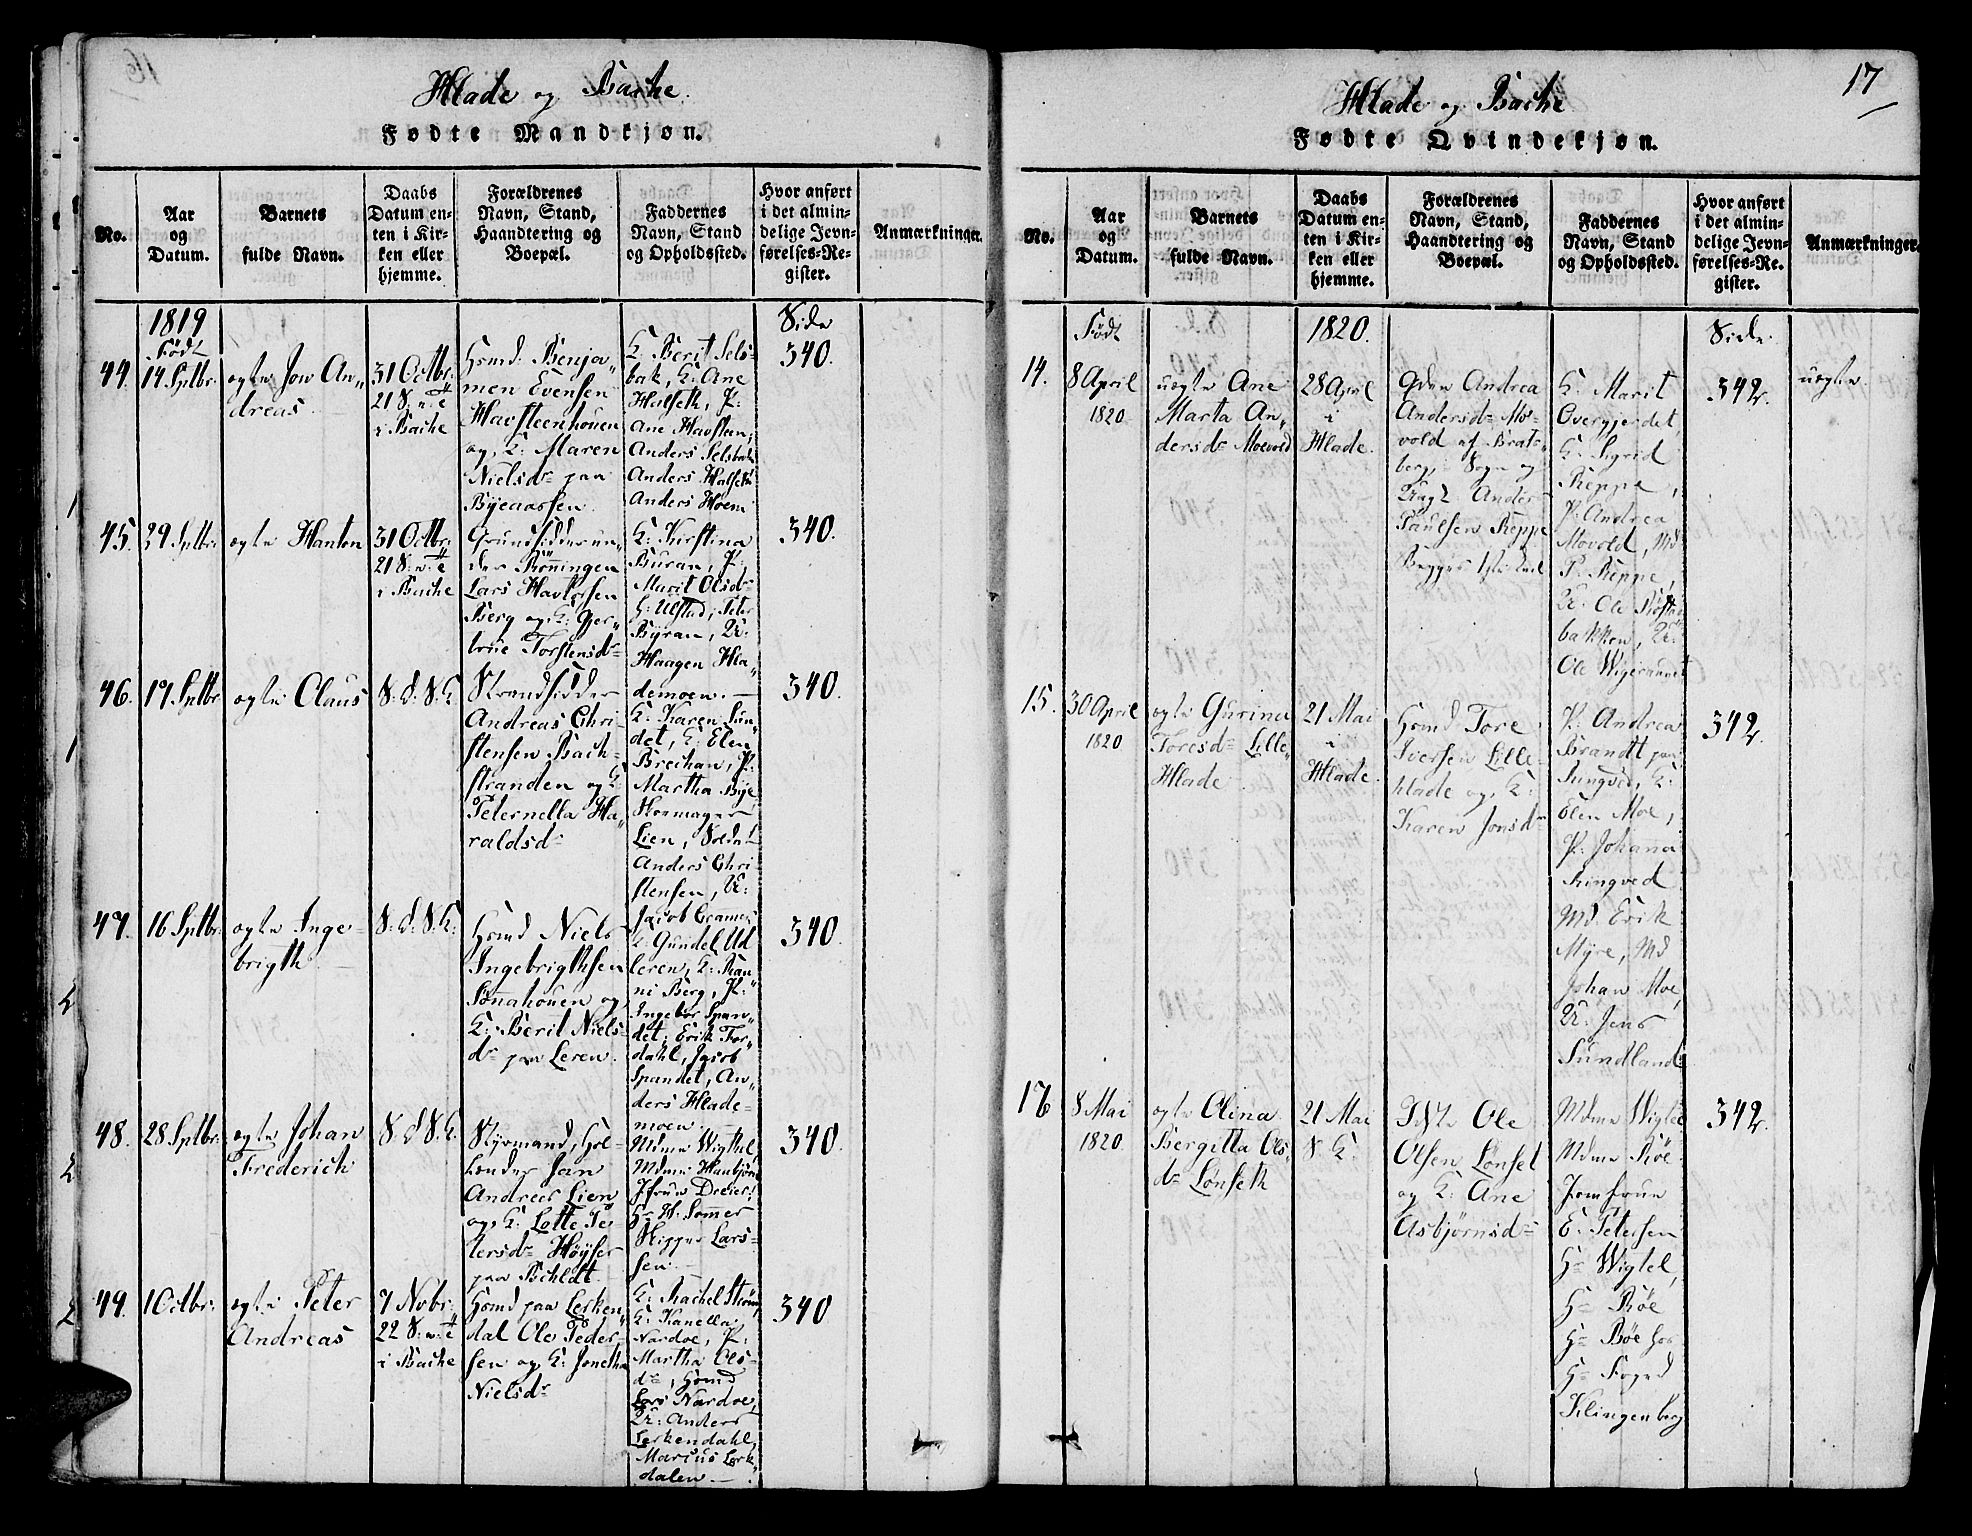 Hlade og Bache.
Fødte Mandkjøn.
No.
Aar
og
Datum.
Barnets
fulde Navn.
Daabs
Datum en-
ten i Kir-
ken eller
hjemme.
Forældrenes
Navn, Stand,
Haandtering og
Boepæl.
Faddernes
Navn, Stand
og Opholdssted.
Hvor anført
i det almin-
delige Jevn-
førelses-Re-
gister.
Anmærkninger.
1819
Født
Side
44.
14 Sptbr.
ægte Jon An-
dreas.
31 Octbr:
21 S. n. t
i Bache
Huusmd: Benja-
men Evensen
Havsteenhouen
og K: Maren
Nielsd: paa
Byeaassen.
K: Berit Sels-
bak, K: Ane
Halseth, P:
Ane Havsteen,
Anders Selsbak
Anders Halseth
Anders Hoem
340.
45.
29 Sptbr.
ægte Hanton
31 Octbr:
21 S. n. t
i Bache
Grundsidder un-
der Rönningen
Lars Havorsen
Berg og K: Gjer-
true Torstensd:
K: Kirstina
Buran, P:
Marit Olsd:
Ulstad, Peter
Byran, U:
Haagen Hla-
demoen.
340.
46.
17 Sptbr
ægte Claus
S: d: S: K
Strandsidder
Andreas Chri-
stensen Bach-
stranden og K:
Peternella Ha-
raldsd:
K: Karen Sun-
det, K: Elen
Breehan, P:
Martha Bye
Skoemager
Lien, Soldat
Anders Chri-
stensen, U:
Jacob Cramer
340.
47.
16 Sptbr.
ægte Inge-
brigth.
S: d: S: K:
Huusmd Niels
Ingebrigthsen
Sönahouen og
K: Berit Niels-
d: paa Leren.
K: Gundel Ud
leren, K: Ran-
ni Berg, P:
Ingebor Span-
det, Erik For-
dahl, Jacob
Spandet, An-
ders Hlade-
moen.
340.
48.
28 Sptbr.
ægte Johan
Frederich
S: d: S: K.
Styrmand, Hol-
lender Jan
Andreas Lien
og K: Lotte Pe-
tersd: Höyser
paa Ihleldt
Mdme Wigthel,
Mdme Haubjörn
Jfrue Dreier,
Hr H. Sommer
Skipper Lars-
sen.
340
49.
1 Octbr:
ægte Peter
Andreas
7 Novbr:
22 S. n. t
i Bache
Huusmd paa Lerken-
dal Ole Peder-
sen og K: Jonetha
Nielsd:
K: Rachel Ström,
K: Kanella
Nardoe, P:
Martha Ols-
d:, Huusmd
Lars Nardoe,
U: Anders
Lerkendahl,
Marcus Lerk-
dalen.
340
17
Hlade og Bache
Fødte Qvindekjøn.
No.
Aar
og
Datum.
Barnets
fulde Navn.
Daabs
Datum en-
ten i Kir-
ken eller
hjemme.
Forældrenes
Navn, Stand,
Haandtering og
Boepæl.
Faddernes
Navn, Stand
og Opholdssted.
Hvor anført
i det almin-
delige Jevn-
førelses-Re-
gister.
Anmærkninger.
Født
1820.
Side
14.
8 April
1820
uægte Ane
Marta An-
dersd: Moevold
28 April
i
Hlade.
Qden Andrea
Andersd: Mo-
vold af Brat-
berg, Sogn og
Ungk: Anders
Paulsen Reppe
Begges 1ste
K: Marit
Overgjerdet,
K: Sigrid
Reppe,
P: Andrea
Movold, Md
P: Reppe,
U: Ole Röstad
bakken, U:
Ole Wigerannet
342.
uægte
15.
30 April
1820
ægte Gurina
Toresd: Lille-
Hlade
21 Mai
i
Hlade.
Huusmd Tore
Iversen Lille-
hlade og K:
Karen Jonsd:
P: Andrea
Brandt paa
Ringved, K:
Olen Moe,
P: Johana
Ringved
Md. Erik
Myre, Md
Johan Moe,
U: Jens
Sundland
342.
16
8 Mai
1820
ægte Olina
Bergitta Ols-
d: Lønseth
21 Mai
S. K.
Ole
Olsen Lønset
og K: Ane
Asbjørnsd:
Mdme Wigtel
Mdme Röe
Jomfrue
E. Petersen
Hr Wigtel,
Hr Röe
Hr Böe
Hr Foged
Klingenberg
342.